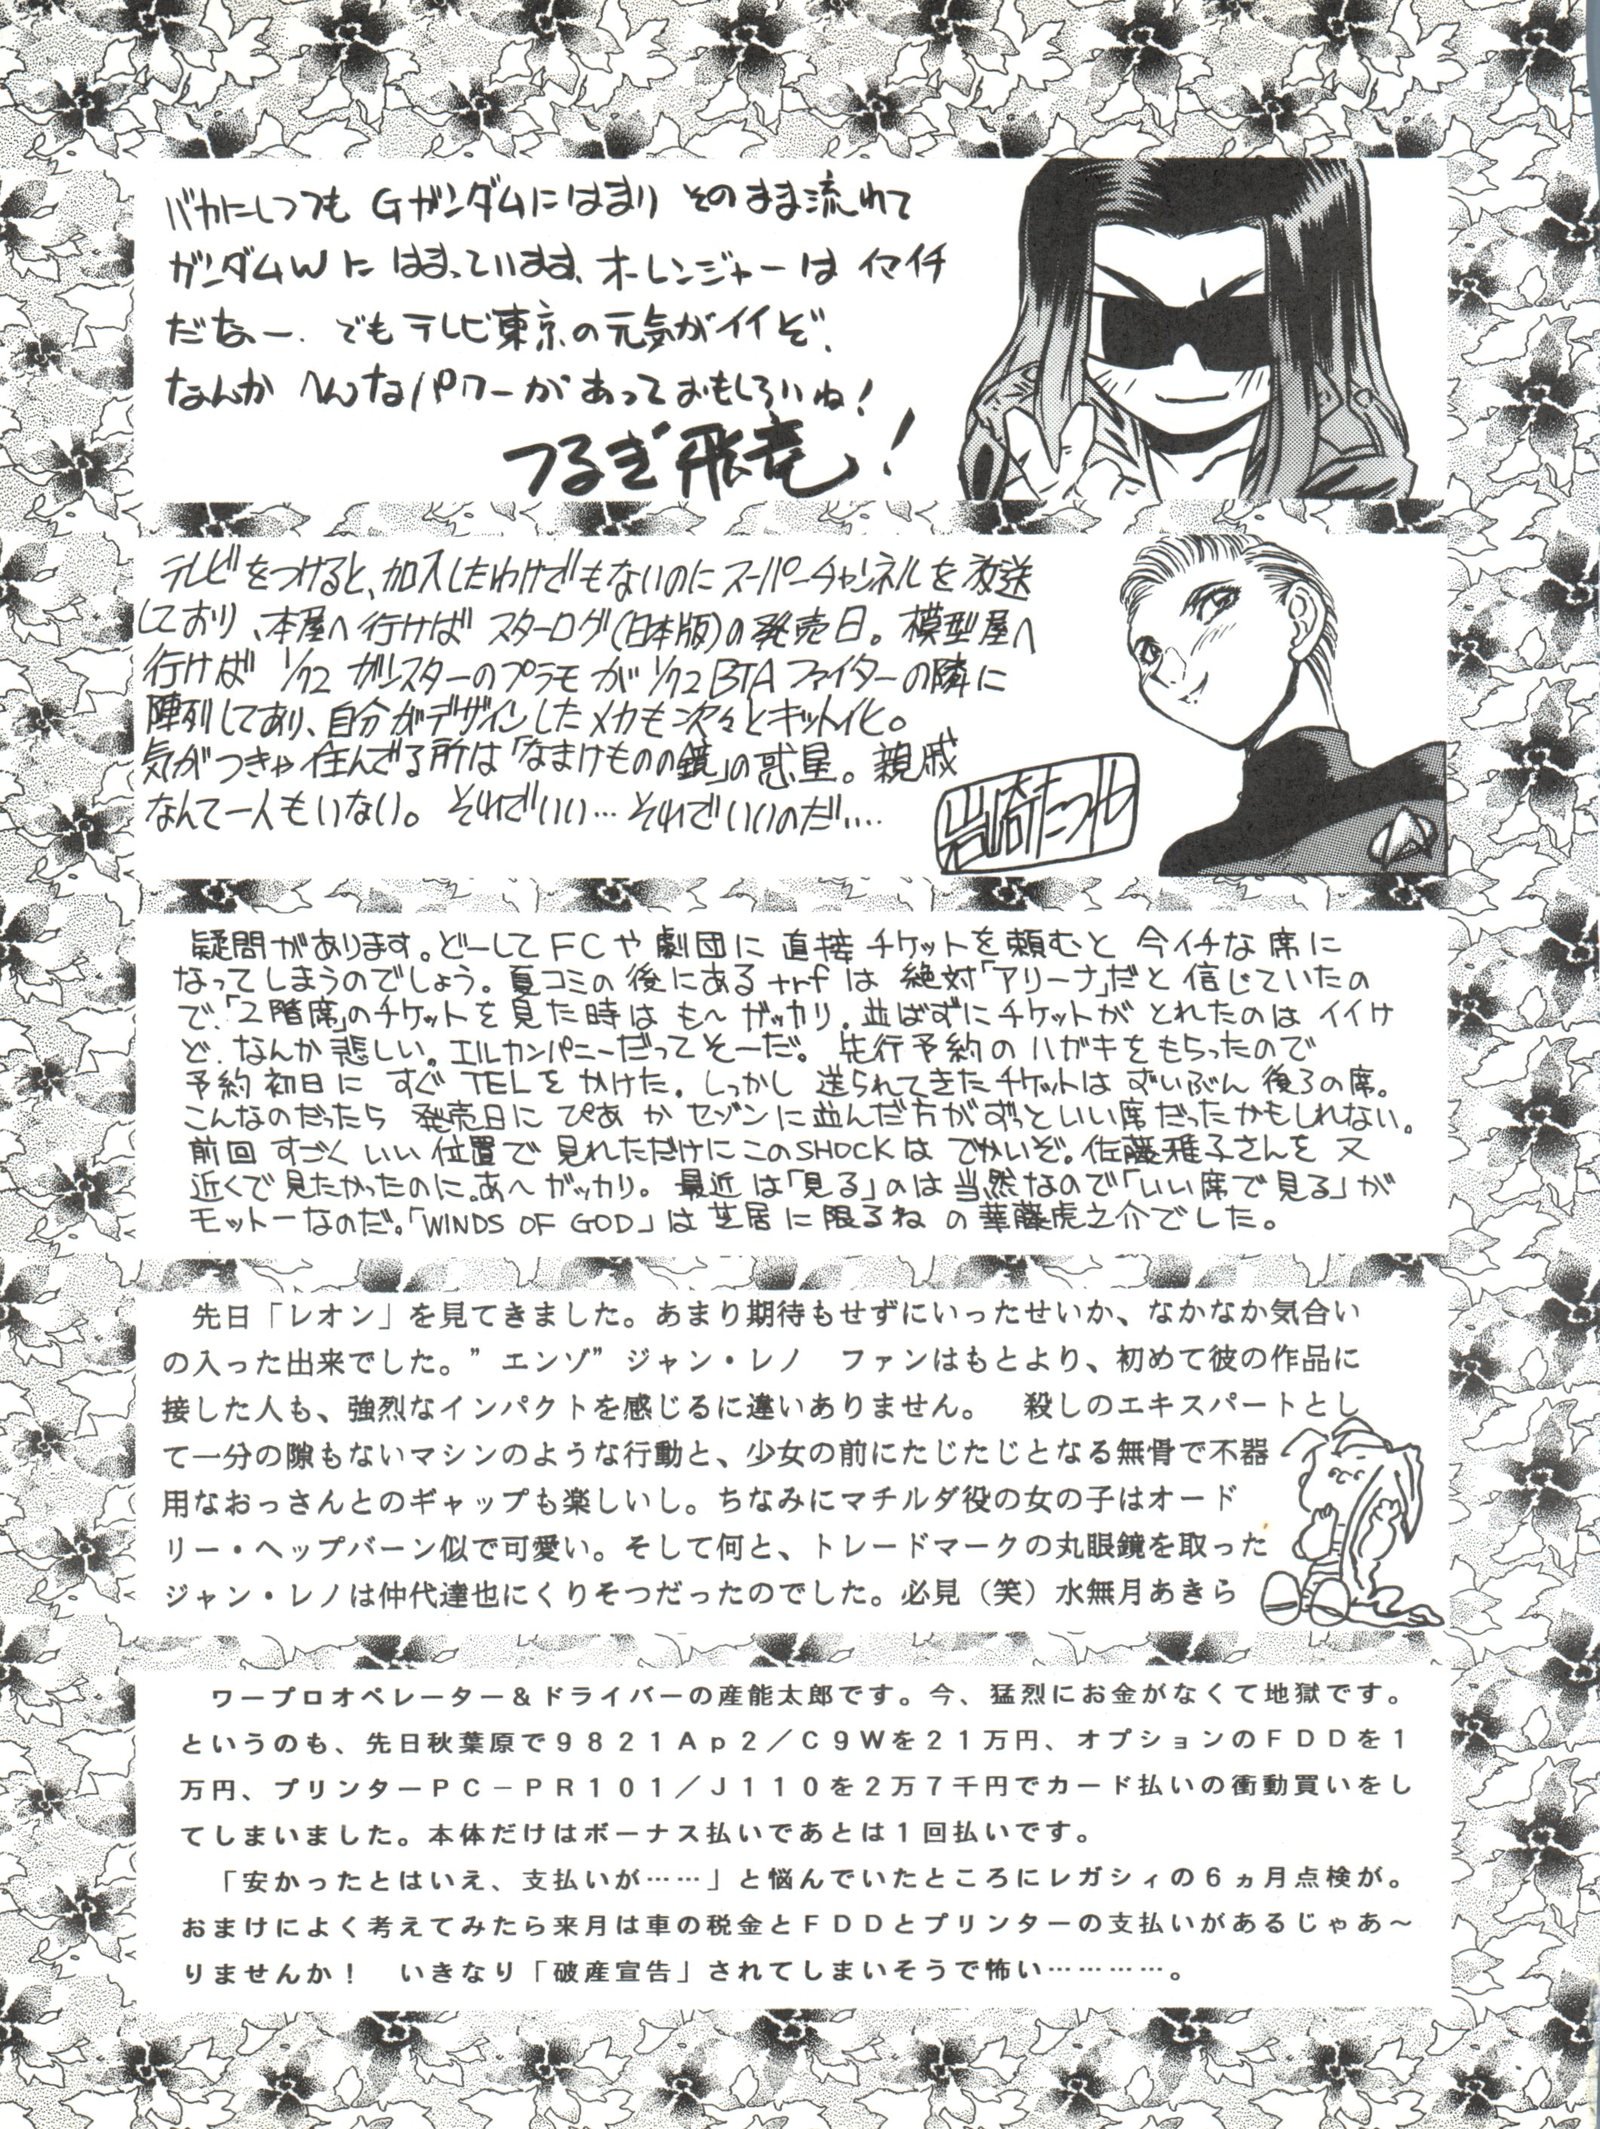 バカにしつつも Gガンダムにはまり そのまま流れて
ガンダムWに はまっています、オーレンジャーは イマイチ
だなー、でもテレビ東京の元気がイイぞ、
なんか へんなパワーがあっておもしろいね!
つるぎ飛竜!
テレビをつけると、加入したわけでもないのにスーパーチャンネルを放送
しており、本屋へ行けば スターログ(日本版)の発売日。模型屋へ
行けば 1/72 ガンスターのプラモが 1/72 BTAファイターの隣に
陣列してあり、自分がデザインしたメカも次々とキット化。
気がつきゃ住んでる所は「なまけものの鏡」の惑星。親戚
なんて一人もいない。それでいい…それでいいのだ….
岩崎たつや
疑問があります。どーしてFCや劇団に直接チケットを頼むと今イチな席に
なってしまうのでしょう。夏コミの後にあるtrfは絶対「アリーナ」だと信じていたの
で、「2階席」のチケットを見た時はも～ガッカリ。並ばずにチケットがとれたのはイイけ
ど、なんか悲しい。エルカンパニーだってそーだ。先行予約のハガキをもらったので
予約初日にすぐTELをかけた。しっかし送られてきたチケットはずいぶん後ろの席。
こんなのだったら発売日にぴあかセゾンに並んだ方がずっといい席だったかもしれない。
前回すごくいい位置で見れただけにこのSHOCKはでかいぞ。佐藤雅子さんを又
近くで見たかったのに。あ～ガッカリ。最近は「見る」のは当然なので「いい席で見る」が
モットーなのだ。「WINDS OF GOD」は芝居に限るねの華藤虎之介でした。
先日「レオン」を見てきました。あまり期待もせずにいったせいか、なかなか気合い
の入った出来でした。”エンゾ”ジャン・レノ　ファンはもとより、初めて彼の作品に
接した人も、強烈なインパクトを感じるに違いありません。　殺しのエキスパートとし
て一分の隙もないマシンのような行動と、少女の前にたじたじとなる無骨で不器
用なおっさんとのギャップも楽しいし。ちなみにマチルダ役の女の子はオード
リー・ヘップバーン似で可愛い。そして何と、トレードマークの丸眼鏡を取った
ジャン・レノは仲代達也にくりそつだったのでした。必見（笑）水無月あきら
ワープロオペレーター＆ドライバーの産能太郎です。今、猛烈にお金がなくて地獄です。
というのも、先日秋葉原で９８２１Ａｐ２／Ｃ９Ｗを２１万円、オプションのＦＤＤを１
万円、プリンターＰＣ－ＰＲ１０１／Ｊ１１０を２万７千円でカード払いの衝動買いをし
てしまいました。本体だけはボーナス払いであとは１回払いです。
「安かったとはいえ、支払いが……」と悩んでいたところにレガシィの６ヵ月点検が。
おまけによく考えてみたら来月は車の税金とＦＤＤとプリンターの支払いがあるじゃあ～
りませんか！　いきなり「破産宣告」されてしまいそうで怖い…………。